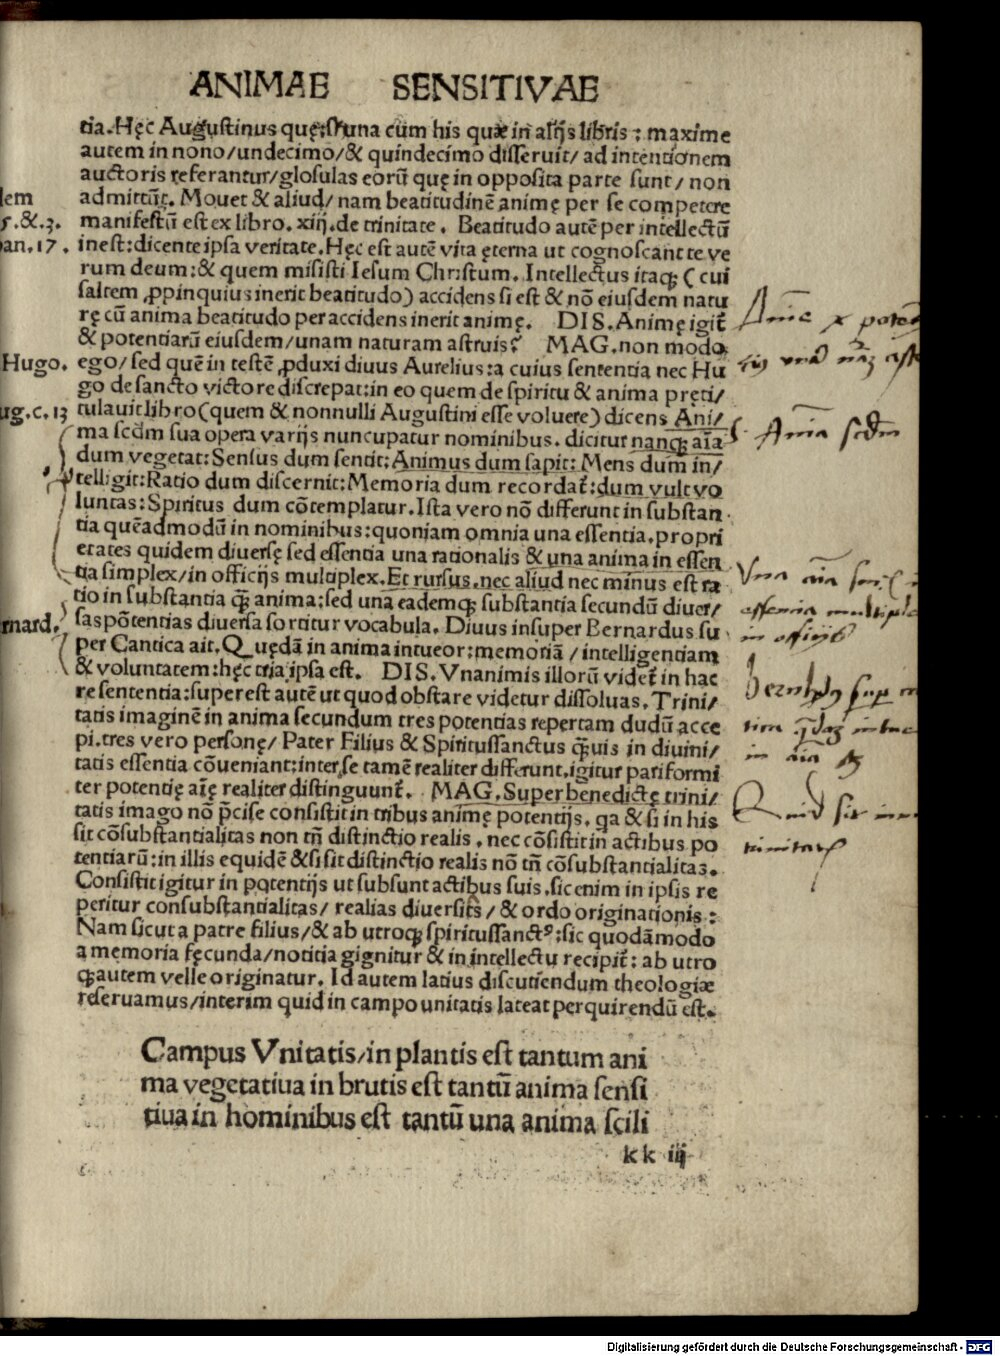 ANIMAE SENSITIVAE
tia. Hęc Augustinus quę: una cum his quæ in alijs libris: maxime
autem in nono/undecimo/& quindecimo disseruit/ ad intentionem
auctoris referantur/glosulas eorū quę in opposita parte sunt/ non
admittūt. Mouet & aliud/ nam beatitudinē animę per se competere
manifestū est ex libro. xiij. de trinitate. Beatitudo autē per intellectū
inest: dicente ipsa veritate. Hęc est autē vita ęterna ut cognoscant te ve
rum deum: & quem misisti Iesum Christum. Intellectus itaqꝫ (cui
saltem ꝓpinquius inerit beatitudo) accidens si est & nō eiusdem natu
rę cū anima beatitudo per accidens inerit animę. DIS. Animę igit̄
& potentiarū eiusdem/unam naturam astruis? MAG. non modo
ego/ sed quē in testē ꝓduxi diuus Aurelius: a cuius sententia nec Hu
go de sancto victore discrepat: in eo quem de spiritu & anima pręti/
tulauit libro (quem & nonnulli Augustini esse voluere) dicens Ani/
ma scdm sua opera varijs nuncupatur nominibus. dicitur nanqꝫ aīa
dum vegetat: Sensus dum sentit: Animus dum sapit: Mens dum in/
telligit: Ratio dum discernit: Memoria dum recordat̄: dum vult vo
luntas: Spiritus dum cōtemplatur. Ista vero nō differunt in substan
tia quēadmodū in nominibus: quoniam omnia una essentia. propri
etates quidem diuersę sed essentia una rationalis & una anima in essen
tia simplex/in officijs multiplex. Et rursus. nec aliud nec minus est ra
tio in substantia q̄ꝫ anima: sed una eademqꝫ substantia secundū diuer/
sas pōtentias diuersa sortitur vocabula. Diuus insuper Bernardus su
per Cantica ait. Quędā in anima intueor: memoriā / intelligentiam
& voluntatem: hęc tria ipsa est. DIS. Vnanimis illorū videt̄ in hac
re sententia: superest autē ut quod obstare videtur dissoluas. Trini/
tatis imaginē in anima secundum tres potentias repertam dudū acce
pi. tres vero personę/ Pater Filius & Spiritussanctus q̄uis in diuini/
tatis essentia cōueniant: inter se tamē realiter differunt. igitur pariformi
ter potentię aīę realiter distinguunt̄. MAG. Superbenedictę trini/
tatis imago nō p̄cise consistit in tribus animę potentijs. qa & si in his
sit cōsubstantialitas non tn̄ distinctio realis. nec cōsistit in actibus po
tentiarū: in illis equidē & si sit distinctio realis nō tn̄ cōsubstantialitas.
Consistit igitur in potentijs ut subsunt actibus suis. sic enim in ipsis re
peritur consubstantialitas/ realias diuersits/ & ordo originationis:
Nam sicut a patre filius/& ab utroqꝫ spiritussanctꝰ: sic quodāmodo
a memoria fęcunda/notitia gignitur & in intellectu recipit̄: ab utro
qꝫ autem velle originatur. Id autem latius discutiendum theologiæ
reseruamus/interim quid in campo unitatis lateat perquirendū est.
Campus Vnitatis/in plantis est tantum ani
ma vegetatiua in brutis est tantū anima sensi
tiua in hominibus est tantū una anima scili
kk iij
dem
5.&.3.
oan.17.
Hugo.
ug.c.13
rnard.
una nā
Aīma scdm
Vna aīa
essentia multiplex
in officijs
in aīa
Quid sit
trinitatis
Digitalisierung gefördert durch die Deutsche Forschungsgemeinschaft - DFG